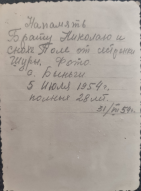 На память
Брату Николаю и
снохе Поле от
Шуры. Фото
о. Быньги
5 Июля 1959 г.
полные 28 лет.
59 г.